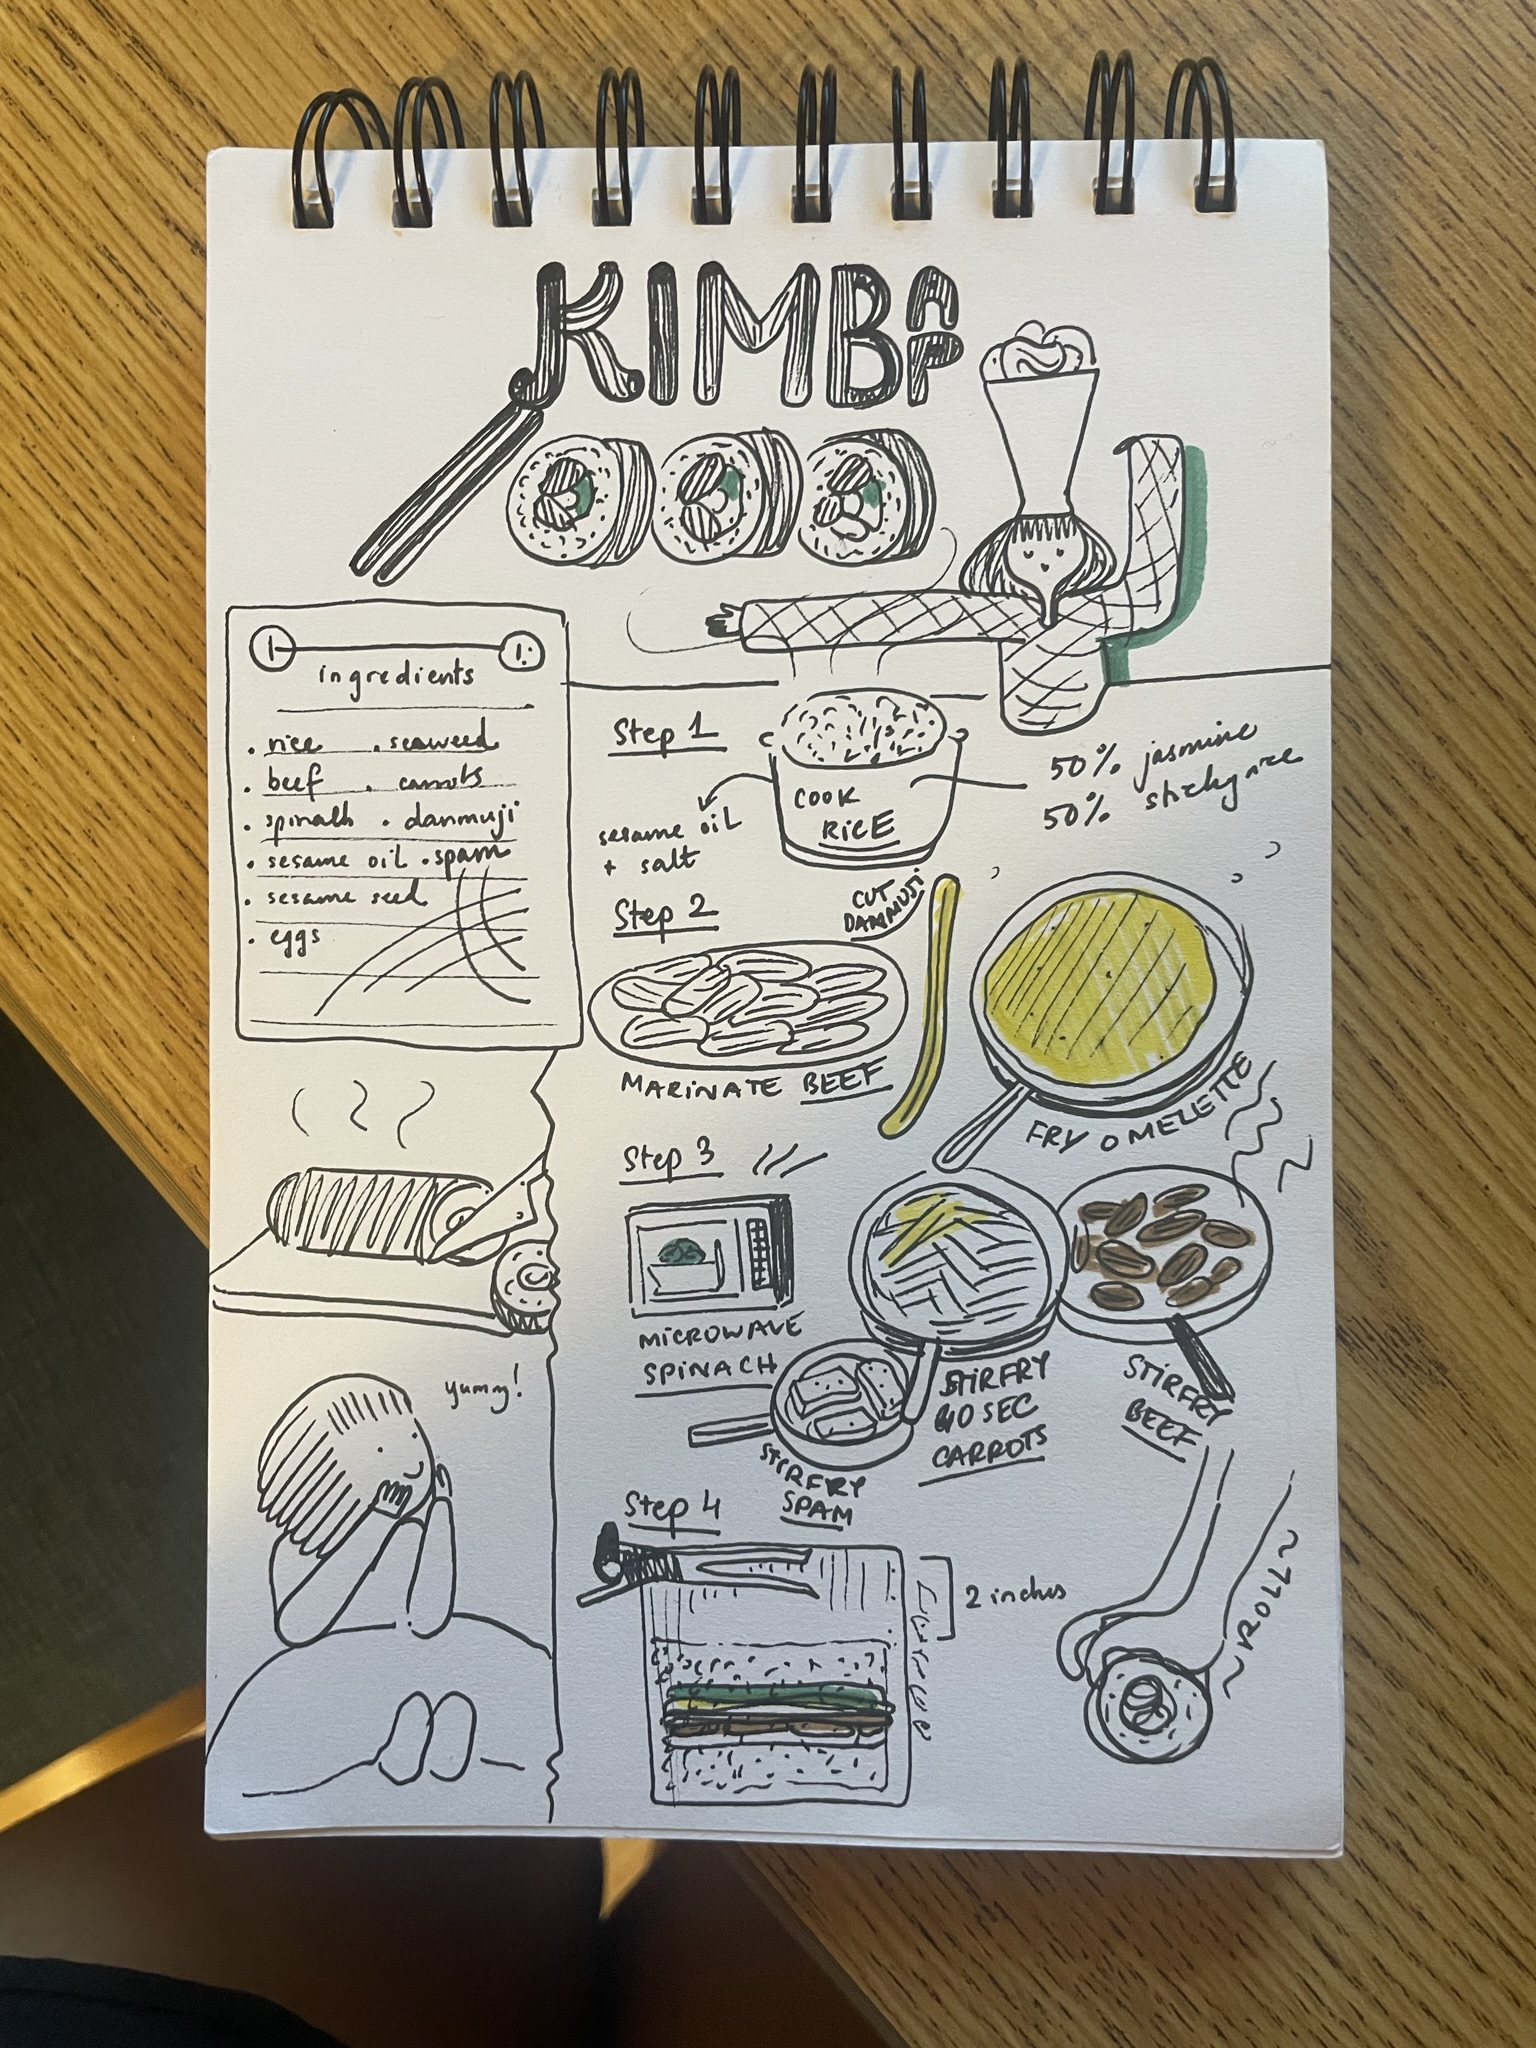 KIMBAP
ingredients
. rice . seaweed
. beef . carrots
. spinach . danmuji
. sesame oil . spam
. sesame seed
. eggs
Step 1
COOK
RICE
sesame oil
+ salt
50% jasmine
50% sticky rice
Step 2
CUT
DANMUJI
MARINATE BEEF
FRY OMELETTE
Step 3
MICROWAVE
SPINACH
STIRFRY
SPAM
STIRFRY
40 SEC
CARROTS
STIRFRY
BEEF
Step 4
2 inches
~ROLL~
yumy!